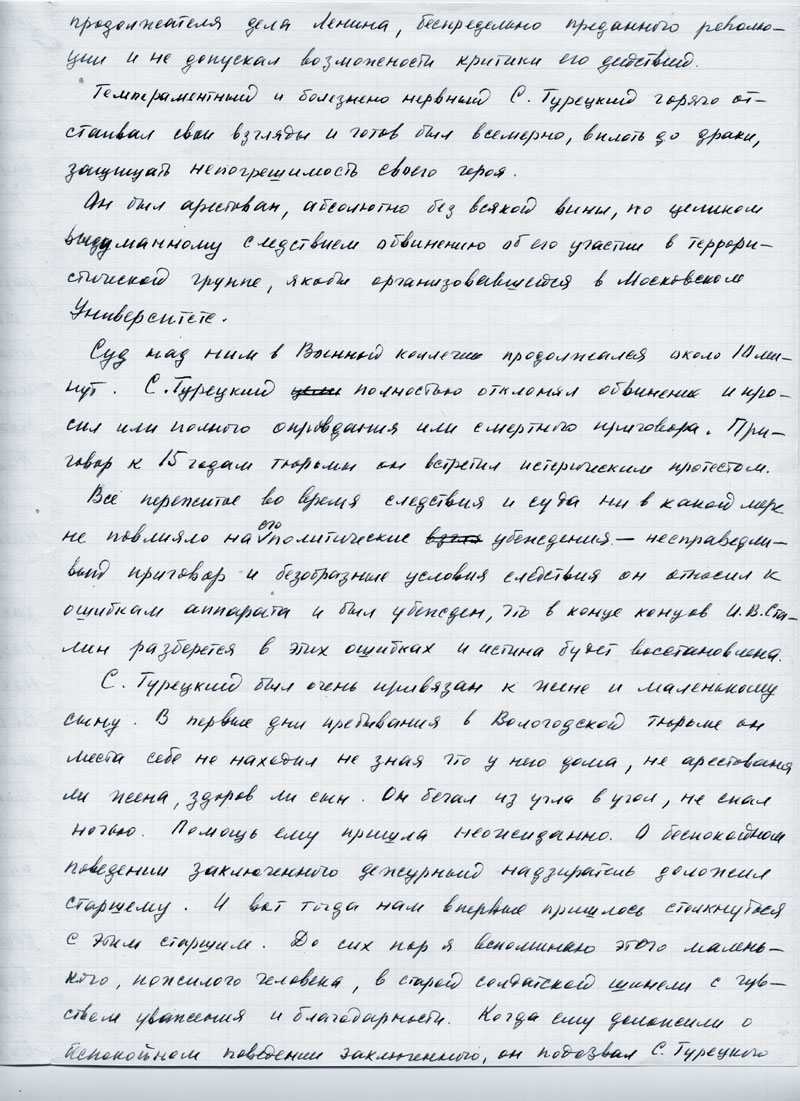 продолжателя дела Ленина, беспредельно преданного револю-
ции и не допускал возможности критики его действий.
Темпераментный и болезнено нервный С. Турецкий горячо от-
стаивал свои взгляды и готов был всемерно, вплоть до драки,
защищать непогрешимость своего героя.
Он был арестован, абсолютно без всякой вины, по целиком
выдуманному следствием обвинению об его участии в террори-
стической группе, якобы организовавшейся в Московском
Университете.
Суд над ним в Военной коллегии продолжался около 10 ми-
нут. С. Турецкий полностью отклонял обвинение и про-
сил или полного оправдания или смертного приговора. При-
говор к 15 годам тюрьмы он встретил истерическим протестом.
Всё пережитое во время следствия и суда ни в какой мере
не повлияло на его политические взгл убеждения — несправедли-
вый приговор и безобразные условия следствия он относил к
ошибкам аппарата и был убежден, что в конце концов И.В. Ста-
лин разберется в этих ошибках и истина будет восстановлена.
С. Турецкий был очень привязан к жене и маленькому
сыну. В первые дни пребывания в Вологодской тюрьме он
места себе не находил не зная что у него дома, не арестована
ли жена, здоров ли сын. Он бегал из угла в угол, не спал
ночью. Помощь ему пришла неожиданно. О беспокойном
поведении заключенного дежурный надзиратель доложил
старшему. И вот тогда нам впервые пришлось столкнуться
с этим старшим. До сих пор я вспоминаю этого малень-
кого, пожилого человека, в старой солдатской шинели с чув-
ством уважения и благодарности. Когда ему доложили о
беспокойном поведении заключенного, он подозвал С. Турецкого